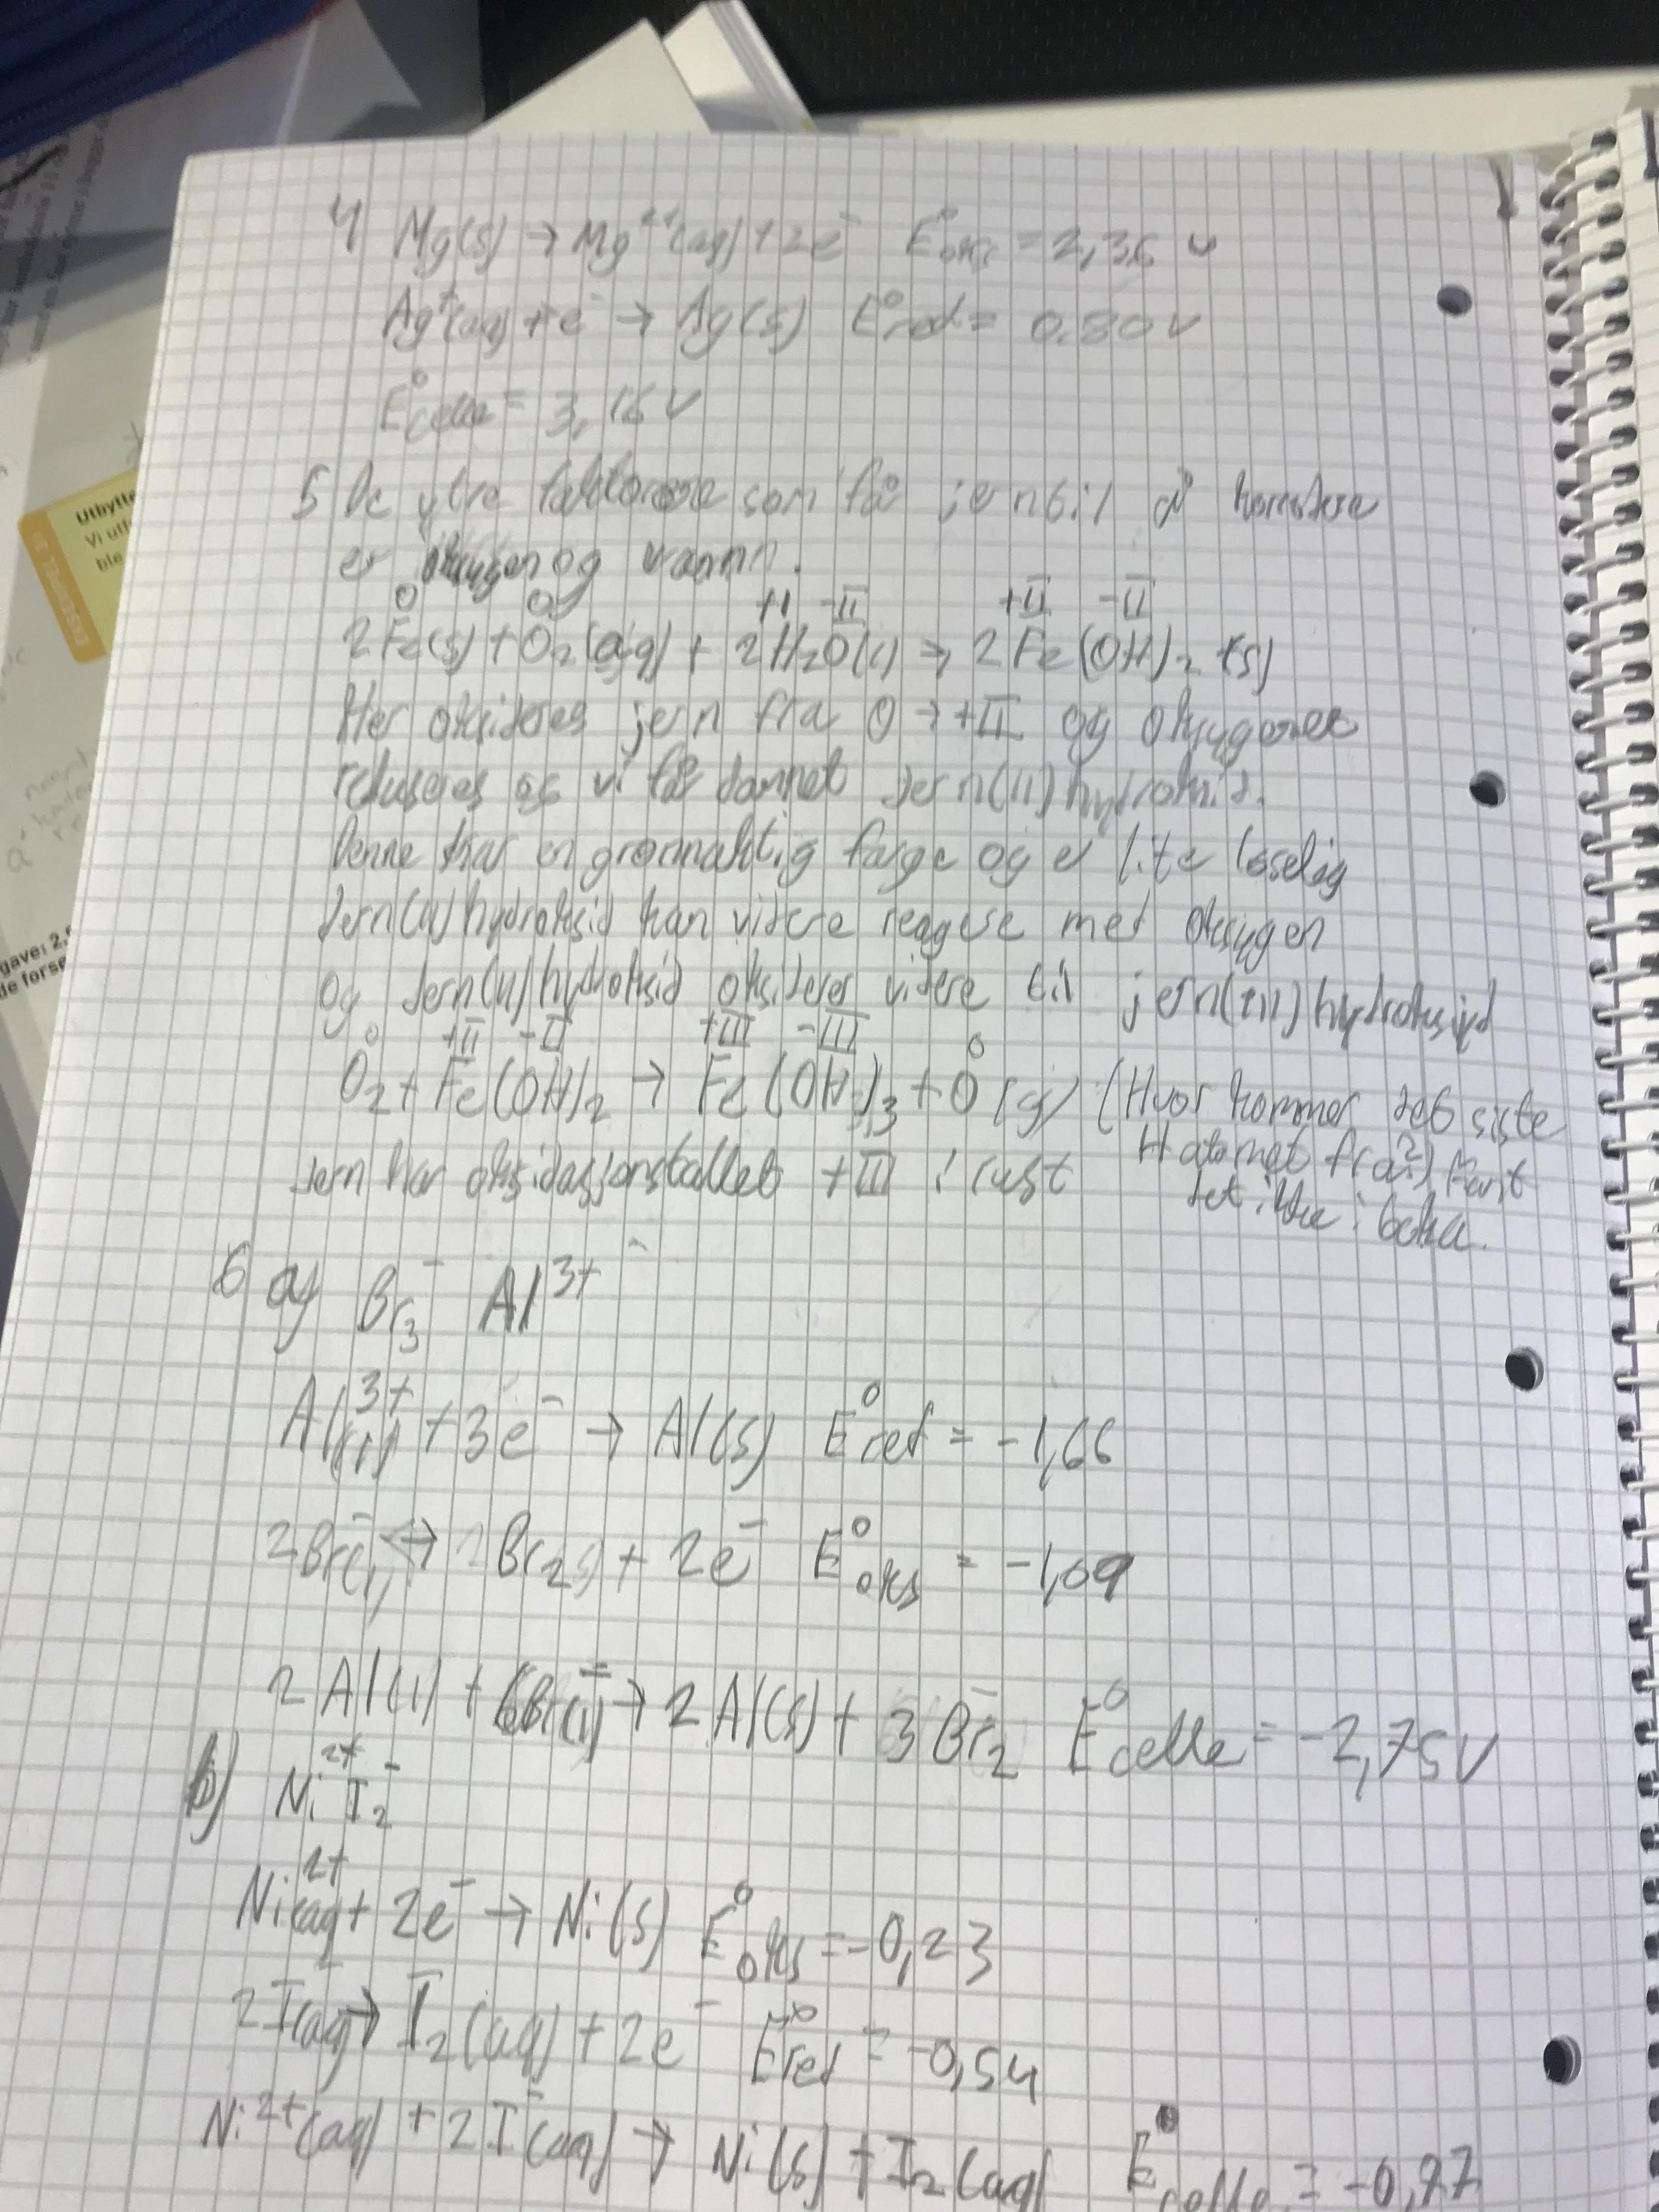 4 Mg(s) → Mg²⁺(aq) + 2e⁻ E°oks = 2,36 V
Ag⁺(aq) + e⁻ → Ag(s) E°red = 0.80 V
E°celle = 3,16 V
5 De ytre faktorene som får jern til å korrodere
er oksygen og vann.
0 0 +I -II +II -II
2Fe(s) + O₂(aq) + 2H₂O(l) → 2Fe(OH)₂(s)
Her oksideres jern fra 0 → +II og oksygenet
reduseres og vi får dannet Jern(II)hydroksid.
Denne har en grønnaktig farge og er lite løselig
Jern(II)hydroksid kan videre reagere med oksygen
og Jern(II)hydroksid oksiderer videre til jern(III)hydroksid
0 +II -II +III -III 0
O₂ + Fe(OH)₂ → Fe(OH)₃ + O(g) (Hvor kommer det siste
H atomet fra?) Fant
det ikke i boka.
Jern har oksidasjonstallet +III i rust
6 a) Br₃⁻ Al³⁺
Al³⁺(l) + 3e⁻ → Al(s) E°red = -1,66
2Br⁻(l) → Br₂ + 2e⁻ E°oks = -1,09
2Al(l) + 6Br⁻(l) → 2Al(s) + 3Br₂ E°celle = -2,75V
b) Ni²⁺ I₂⁻
Ni²⁺(aq) + 2e⁻ → Ni(s) E°oks = -0,23
2I⁻(aq) → I₂(aq) + 2e⁻ E°red = -0,54
Ni²⁺(aq) + 2I⁻(aq) → Ni(s) + I₂(aq) E°celle = -0,77
Utbytte
Vi utb
ble
gave: 2.
de forse